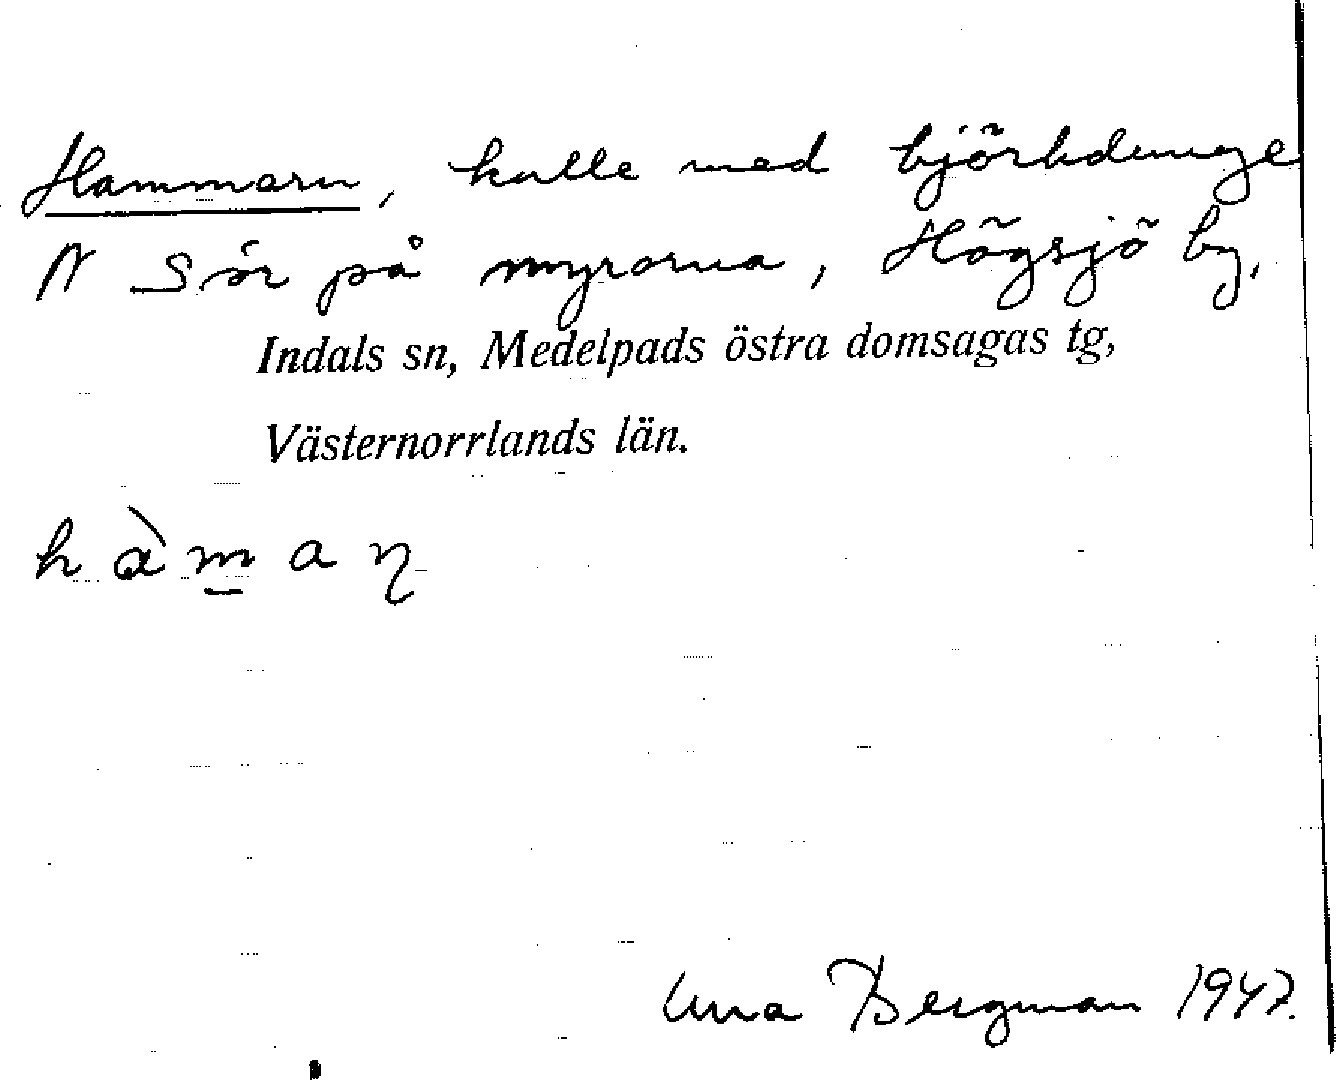 Hammarn, kulle med björkdunge
N Sör på myrorna, Högsjö by,
Indals sn, Medelpads östra domsagas tg,
Västernorrlands län.
h à m̲ a ɳ
Una Bergman 1947.